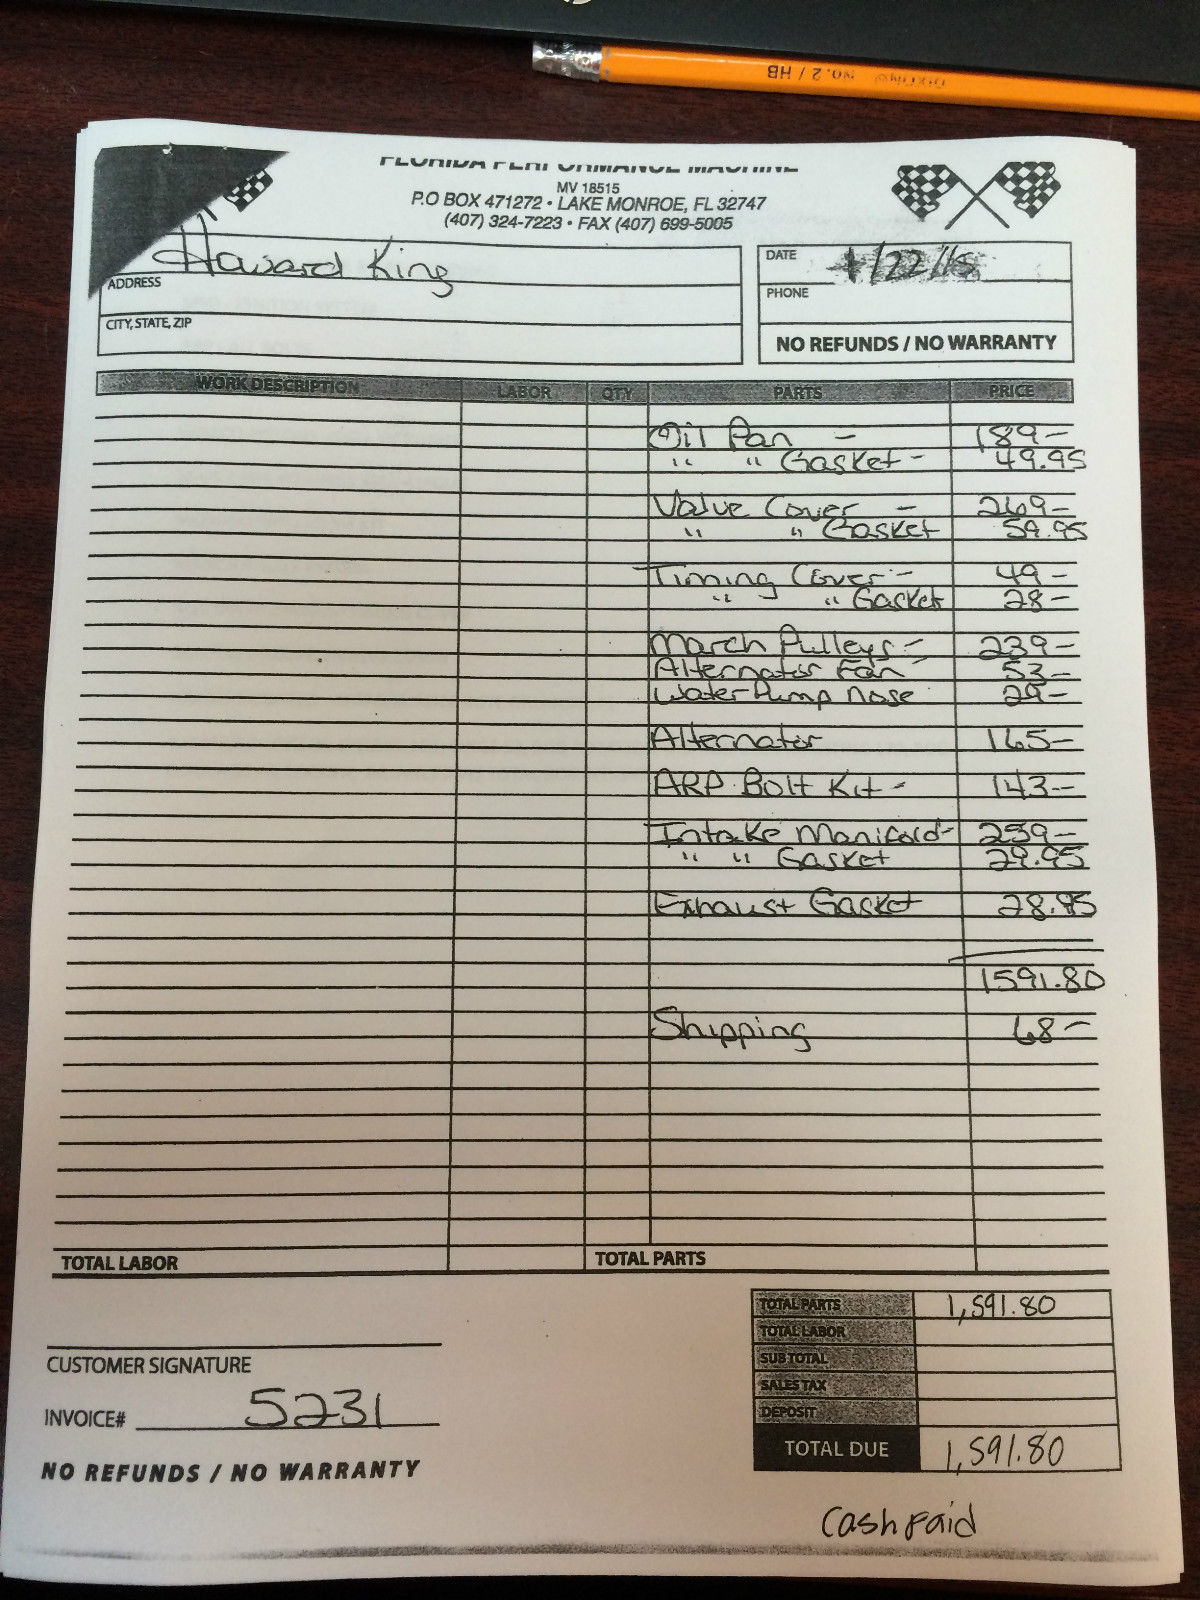 DIXON NO. 2 / HB
FLORIDA PERFORMANCE MACHINE
MV 18515
P.O BOX 471272 • LAKE MONROE, FL 32747
(407) 324-7223 • FAX (407) 699-5005
Howard King
ADDRESS
CITY, STATE, ZIP
DATE /22/18
PHONE
NO REFUNDS / NO WARRANTY
WORK DESCRIPTION LABOR QTY PARTS PRICE
Oil Pan - 189-
" " Gasket - 49.95
Valve Cover - 269-
" " Gasket 59.95
Timing Cover - 49-
" " Gasket 28-
March Pulleys - 239-
Alternator Fan - 53-
Water Pump Nose 29-
Alternator 165-
ARP Bolt Kit - 143-
Intake Manifold - 259-
" " Gasket 29.95
Exhaust Gasket 28.95
1591.80
Shipping 68-
TOTAL LABOR TOTAL PARTS
TOTAL PARTS 1,591.80
TOTAL LABOR
SUB TOTAL
SALES TAX
DEPOSIT
TOTAL DUE 1,591.80
CUSTOMER SIGNATURE
INVOICE# 5231
NO REFUNDS / NO WARRANTY
Cash Paid